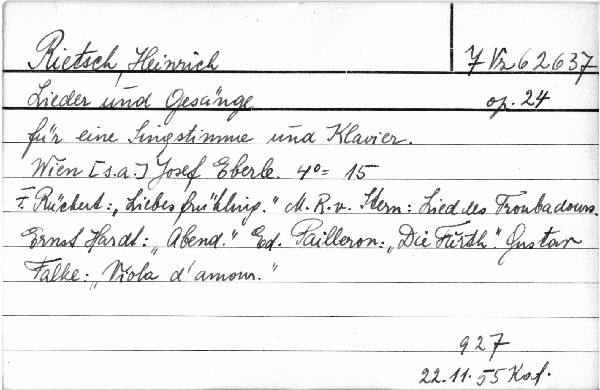 Rietsch, Heinrich 7 Vr 62637
Lieder und Gesänge op. 24
für eine Singstimme und Klavier.
Wien [s.a.] Josef Eberle. 4°= 15
F. Rückert: „Liebesfrühling." M. R. v. Stern: Lied des Troubadours.
Ernst Hardt: „Abend." Ed. Pailleron: „Die Furth". Gustav
Falke: „Viola d'amour."
927
22.11.55 Kof.